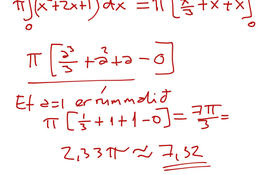 π∫₀(x²+2x+1)dx = π[x³/3+x²+x]₀
π[a³/3+a²+a-0]
Ef a=1 er rúmmálið
π[1/3+1+1-0]=7π/3=
2,33π≈7,32